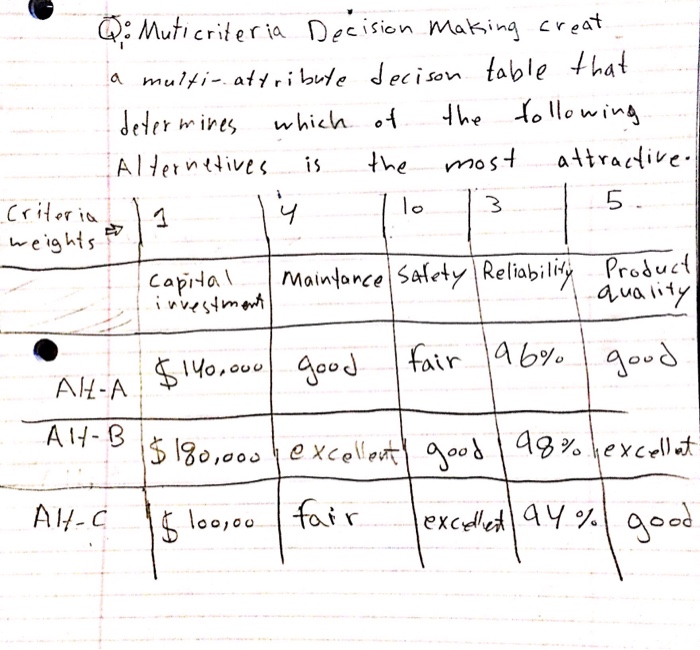 Q: Muticriteria Decision Making creat
a multi-attribute decison table that
determines which of the following
Alternetives is the most attractive.
Criteria weights ⇒ 1 4 10 3 5.
Capital investment Maintance Safety Reliability Product quality
Alt-A $140,000 good fair 96% good
Alt-B $180,000 excellent good 98% excellet
Alt-C $100,00 fair excellet 94% good